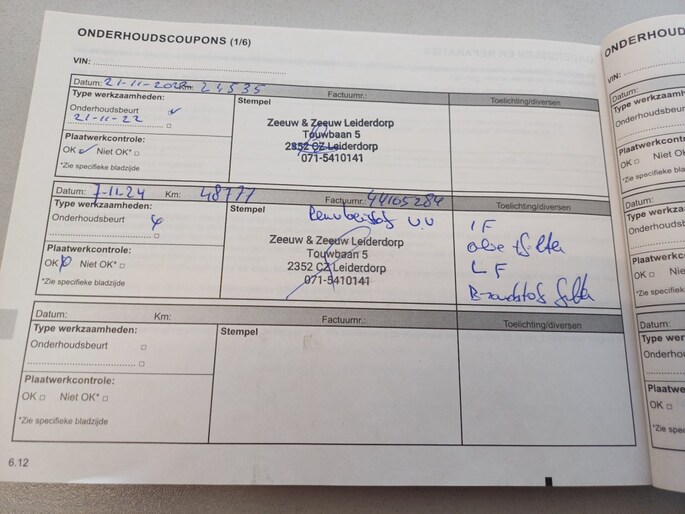 ONDERHOUDSCOUPONS (1/6)
VIN:
Datum: 21-11-2022 Km: 24535 Factuurnr.: Toelichting/diversen
Type werkzaamheden:
Onderhoudsbeurt
21-11-22
Plaatwerkcontrole:
OK Niet OK*
*Zie specifieke bladzijde
Stempel
Zeeuw & Zeeuw Leiderdorp
Touwbaan 5
2352 CZ Leiderdorp
071-5410141
Datum: 7-11-24 Km: 48777 Factuurnr.: 44105284 Toelichting/diversen
Type werkzaamheden:
Onderhoudsbeurt
Plaatwerkcontrole:
OK Niet OK*
*Zie specifieke bladzijde
Stempel
Remvloeistof VV
Zeeuw & Zeeuw Leiderdorp
Touwbaan 5
2352 CZ Leiderdorp
071-5410141
IF
olie filter
LF
Brandstof filter
Datum: Km: Factuurnr.: Toelichting/diversen
Type werkzaamheden:
Onderhoudsbeurt
Plaatwerkcontrole:
OK Niet OK*
*Zie specifieke bladzijde
Stempel
6.12
ONDERHOUD
VIN:
Datum:
Type werkzaamh
Onderhoudsbeurt
Plaatwerkcontro
OK Niet O
*Zie specifieke b
Datum:
Type werkza
Onderhoudsb
Plaatwerkco
OK Nie
*Zie specifiek
Datum:
Type werk
Onderhou
Plaatwe
OK
*Zie spec